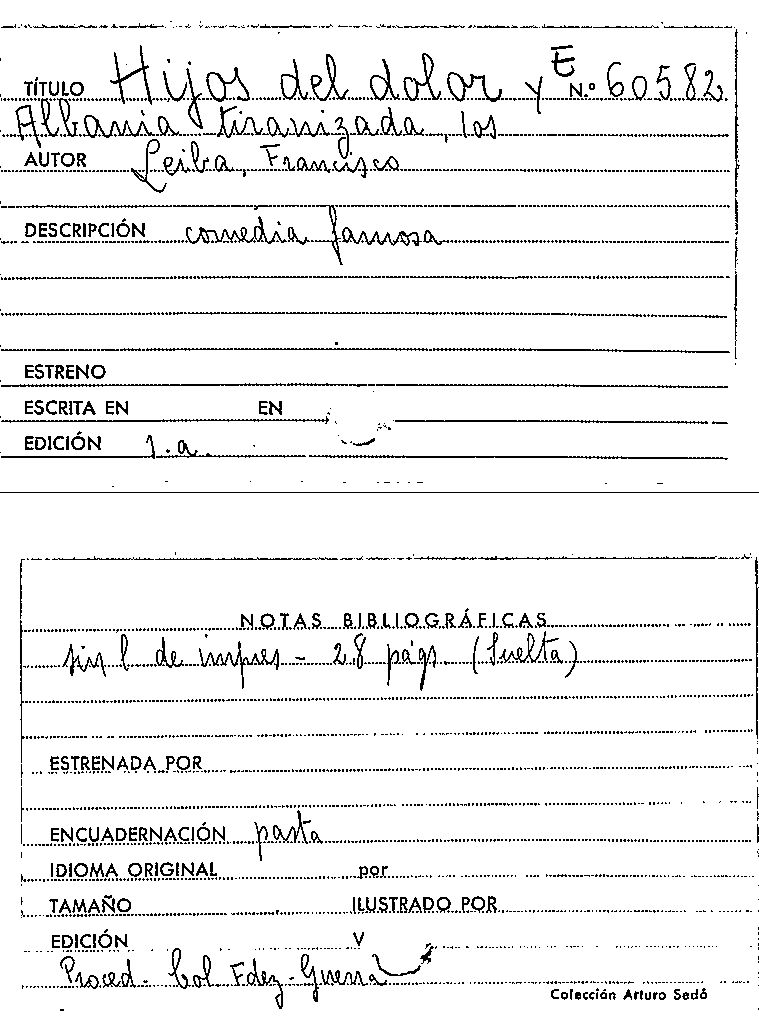 E
TÍTULO Hijos del dolor y N.º 60582
Albania tiranizada, los
AUTOR Leiba, Francisco
DESCRIPCIÓN comedia famosa
ESTRENO
ESCRITA EN EN
EDICIÓN 1.a.
NOTAS BIBLIOGRÁFICAS
sin l de impres - 28 págs. (Suelta)
ESTRENADA POR
ENCUADERNACIÓN pasta
IDIOMA ORIGINAL por
TAMAÑO ILUSTRADO POR
EDICIÓN V
Proced. Col Fdez-Guerra
Colección Arturo Sedó